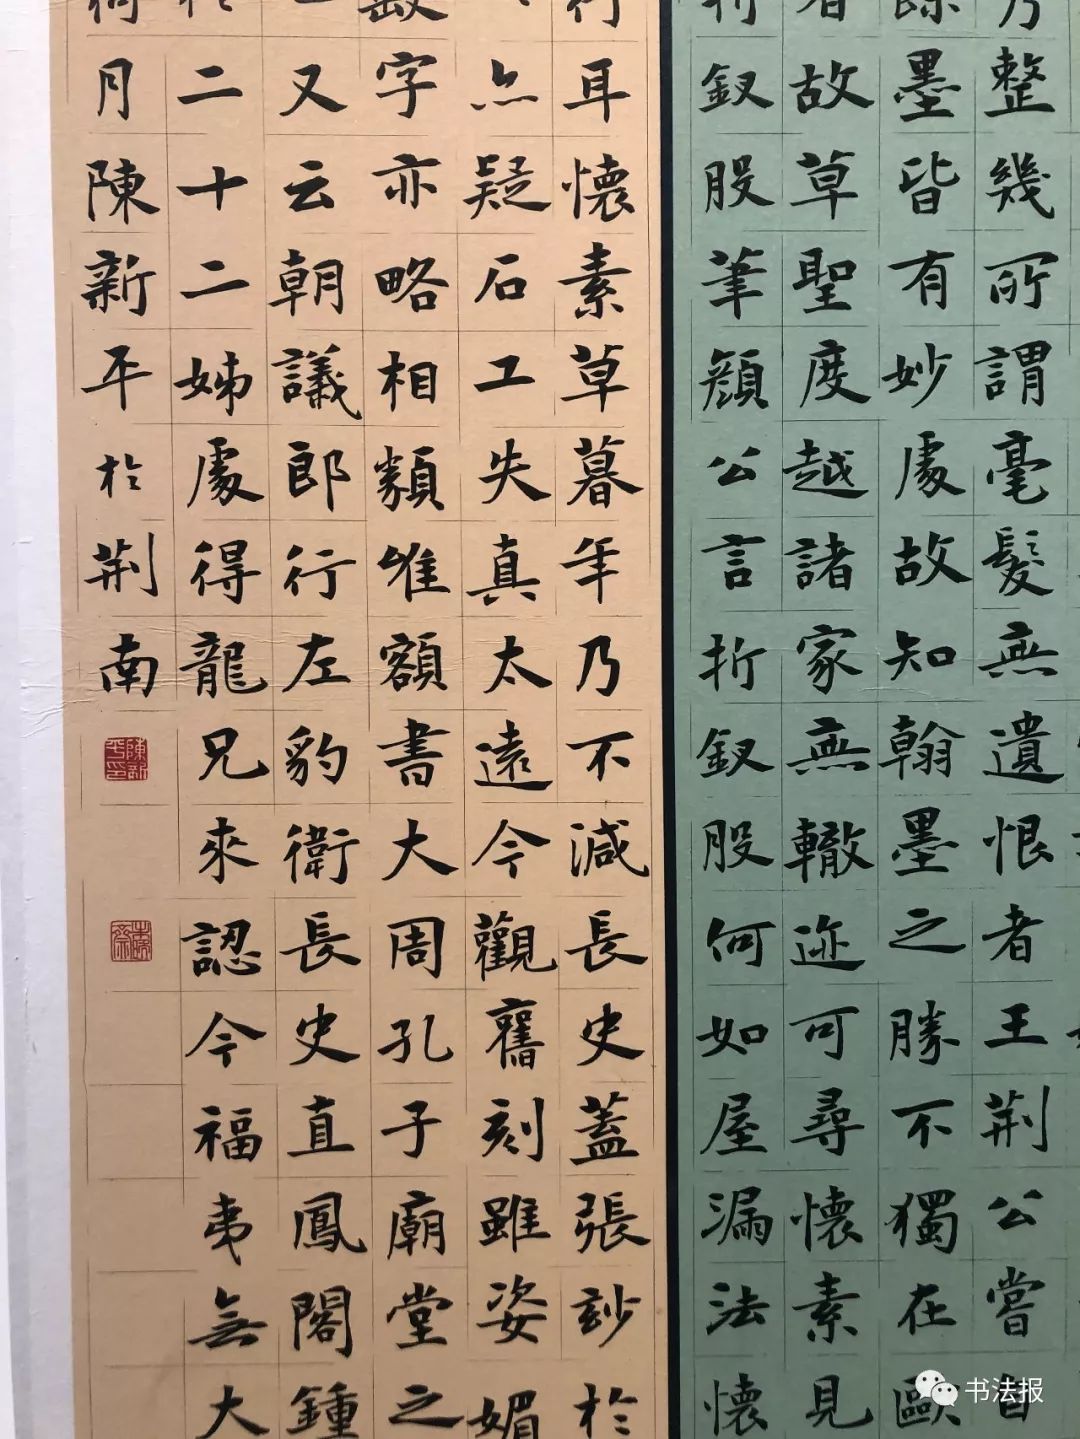 乃整幾所謂毫髮無遺恨者王荆公嘗自
墨皆有妙處故知翰墨之勝不獨在歐
者故草聖度越諸家無轍迹可尋懷素見
釵股筆顔公言折釵股何如屋漏法懷
行耳懷素草暮年乃不減長史蓋張妙於
亦疑石工失真太遠今觀舊刻雖姿媚
字亦略相類唯額書大周孔子廟堂之
又云朝議郎行左豹衛長史直鳳閣鍾
於二十二姊處得龍兄來認今福夷無大
月陳新平於荆南
陳新平印
书法报